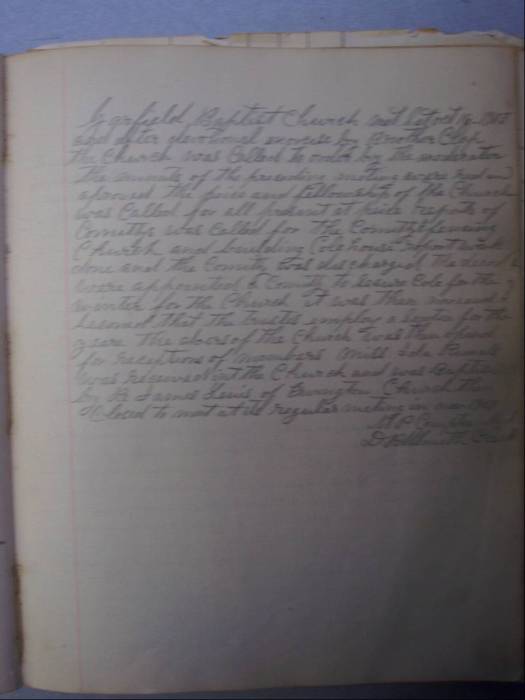 Garfield Baptist Church met Oct
and after devotional exercise by Brother Clop
the Church was Called to order by the moderator
the minuts of the preceding meeting ware read and
aproved the peice and fellowship of the Church
was Called for all present at peice reports of
Comittys was Called for the Comitty fencing
Church and building Cole house report work
done and the Comity was discharged the
ware appointed a Comity to secure Cole for the
winter for the Church it was then
that the trustes employ a for the
yeare the doors of the Church was then opend
for receptions of members miss Rumell
was received into the Church and was Baptised
by B James Lewis of Covington Church then
Closed to meet at its regular meeting in nov